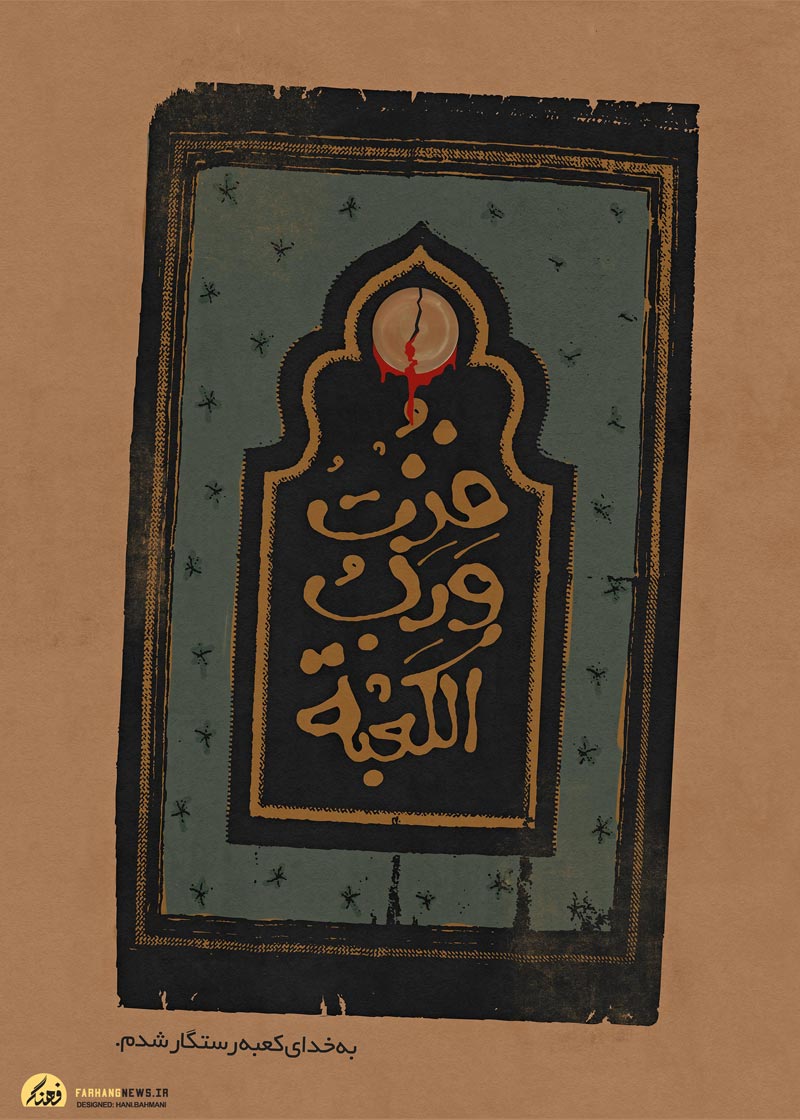 فزتُ
وَرَبُّ
الکَعْبَة
به خدای کعبه رستگار شدم.
فرهنگ
FARHANGNEWS.IR
DESIGNED: HANI.BAHMANI